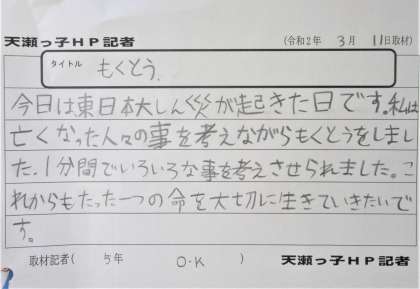 天瀬っ子HP記者 (令和2年 3月 11日取材)
タイトル もくとう。
今日は東日本大しんさいが起きた日です。私は
亡くなった人々の事を考えながらもくとうをしまし
た。1分間でいろいろな事を考えさせられました。こ
れからもたった一つの命を大切に生きていきたいで
す。
取材記者( 5年 O・K ) 天瀬っ子HP記者